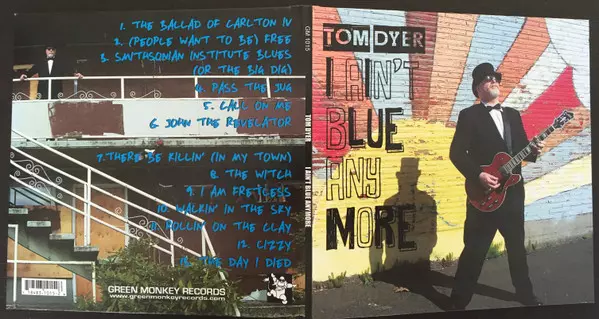 1. THE BALLAD OF CARLTON IV
2. (PEOPLE WANT TO BE) FREE
3. SMITHSONIAN INSTITUTE BLUES
(OR THE BIG DIG)
4. PASS THE JUG
5. CALL ON ME
6. JOHN THE REVELATOR
7. THERE BE KILLIN' (IN MY TOWN)
8. THE WITCH
9. I AM FRETLESS
10. WALKIN' IN THE SKY
11. ROLLIN' ON THE CLAY
12. CIZZY
13. THE DAY I DIED
GREEN MONKEY RECORDS
www.greenmonkeyrecords.com
GM 1015
TOM DYER
I AIN'T BLUE ANYMORE
TOM DYER
I AIN'T
BLUE
ANY
MORE